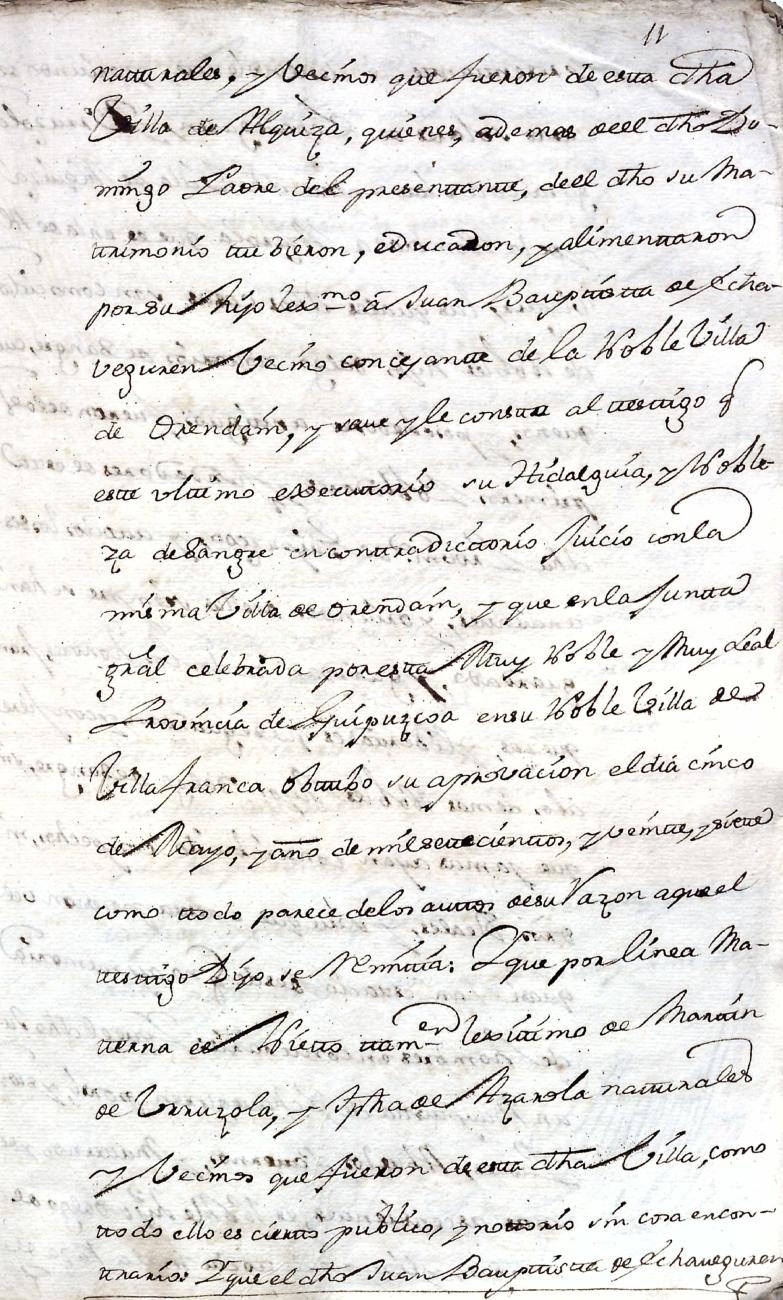 11
natturales, y Vecinos que fueron de esta dha
Villa de Alquiza, quienes, ademas de el dho Do-
mingo Padre del presentante, de el dho su Ma-
ttrimonio ttubieron, educaron, y alimenttaron
por su hijo lexmo â Juan Bauptista de Echa-
veguren Vecino concejante de la Noble Villa
de Orendaín, y save y le consta al testtigo q
este vltimo executtorio su Hidalguia, y Noble
za de Sangre en conttradicttorio Juicio con la
misma Villa de Orendaín, y que en la Juntta
gral celebrada por esta Muy Noble y Muy Leal
Provincia de Guipuzcoa en su Noble Villa de
Villafranca obttubo su aprovacion el dia cinco
de Mayo, y año de mil settecienttos, y veintte, y siette
como ttodo parece de los auttos de su Razon aque el
testtigo Dijo se Remitía: Y que por línea Ma-
tterna es Nietto ttamen lexíttimo de Marttin
de Vrruzola, y Jpha de Azarola natturales
y Vecinos que fueron de esta dha Villa, como
ttodo ello es cierto publico, y nottorio sin cosa en con-
ttrario: Y que el dho Juan Bauptista de Echaveguren